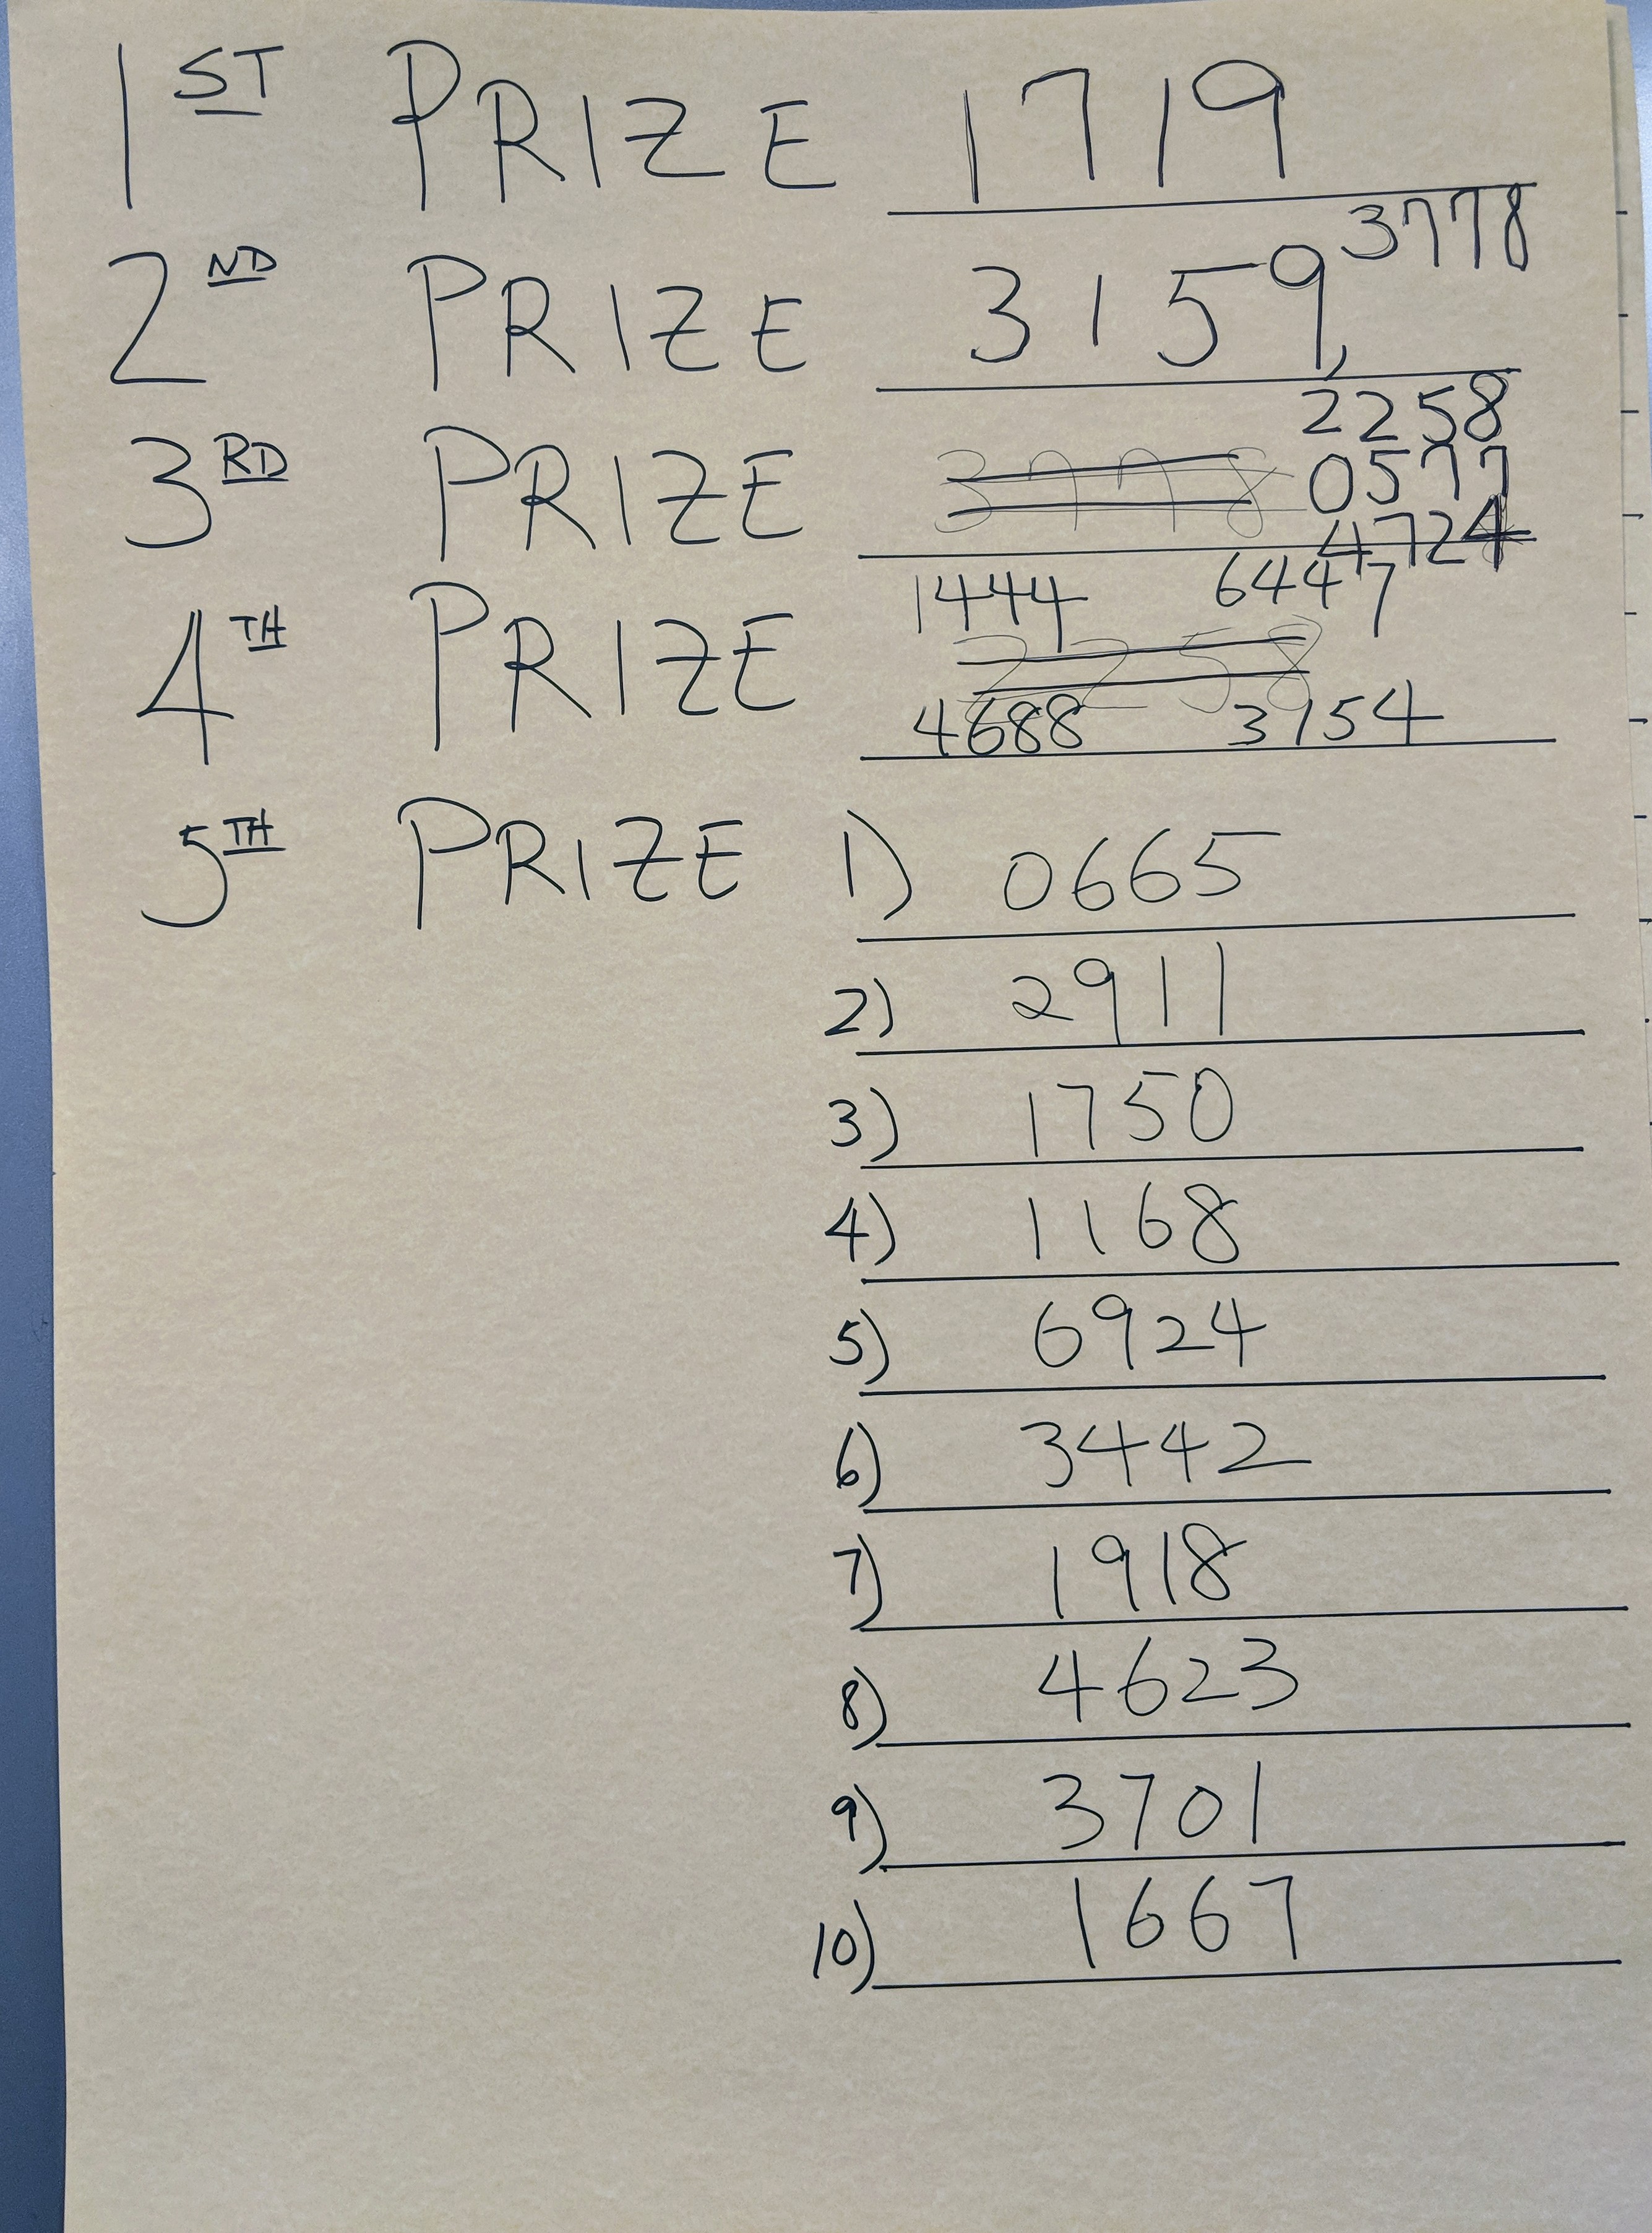 1ST PRIZE 1719
2ND PRIZE 3159, 3778
3RD PRIZE 3778 2258
0577
4724
4TH PRIZE 1444 6447
2258
4688 3154
5TH PRIZE 1) 0665
2) 2911
3) 1750
4) 1168
5) 6924
6) 3442
7) 1918
8) 4623
9) 3701
10) 1667